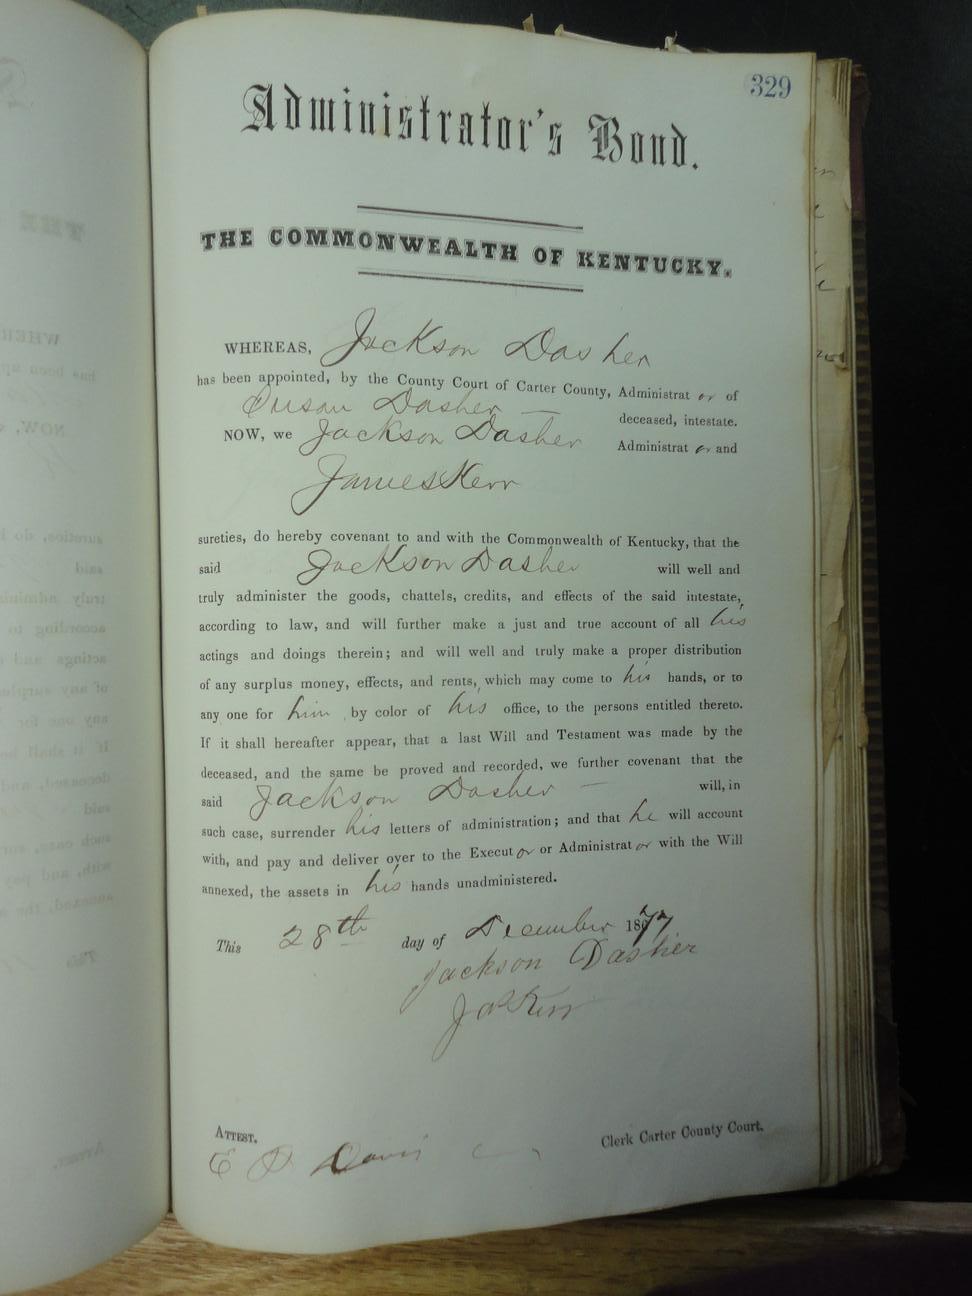 329
Administrator's Bond.
THE COMMONWEALTH OF KENTUCKY.
WHEREAS, Jackson Dasher
has been appointed, by the County Court of Carter County, Administrat or of
Susan Dasher — deceased, intestate.
NOW, we Jackson Dasher Administrat or and
James Kerr
sureties, do hereby covenant to and with the Commonwealth of Kentucky, that the
said Jackson Dasher will well and
truly administer the goods, chattels, credits, and effects of the said intestate,
according to law, and will further make a just and true account of all his
actings and doings therein; and will well and truly make a proper distribution
of any surplus money, effects, and rents, which may come to his hands, or to
any one for him, by color of his office, to the persons entitled thereto.
If it shall hereafter appear, that a last Will and Testament was made by the
deceased, and the same be proved and recorded, we further covenant that the
said Jackson Dasher — will, in
such case, surrender his letters of administration; and that he will account
with, and pay and deliver over to the Execut or or Administrat or with the Will
annexed, the assets in his hands unadministered.
This 28th day of December 1877
Jackson Dasher
Jas Kerr
ATTEST.
Clerk Carter County Court.
E D Davis